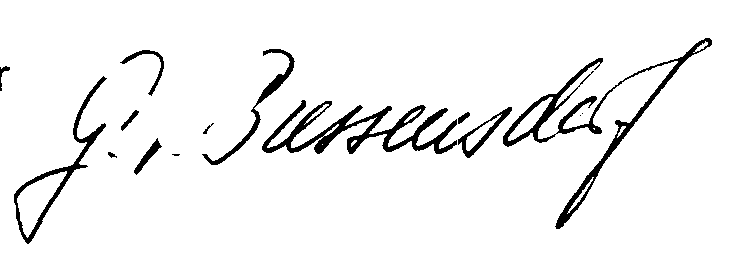 G. v. Bussensdorf